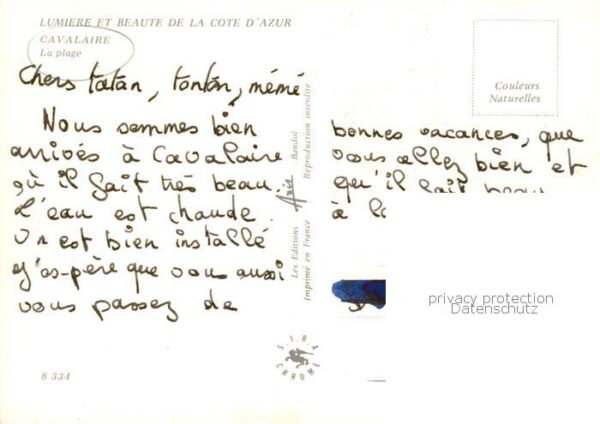 LUMIERE ET BEAUTE DE LA COTE D'AZUR
CAVALAIRE
La plage
Chers tatan, tonton, mémé
Nous sommes bien
arrivés à Cavalaire
où il fait très beau.
L'eau est chaude.
On est bien installé
j'es-père que vous aussi
vous passez de
bonnes vacances, que
vous allez bien et
qu'il fait beau
à la
Couleurs
Naturelles
Les Editions Aris Bandol
Imprimé en France Reproduction interdite
S.I.R.A.
CHROME
8 334
privacy protection
Datenschutz